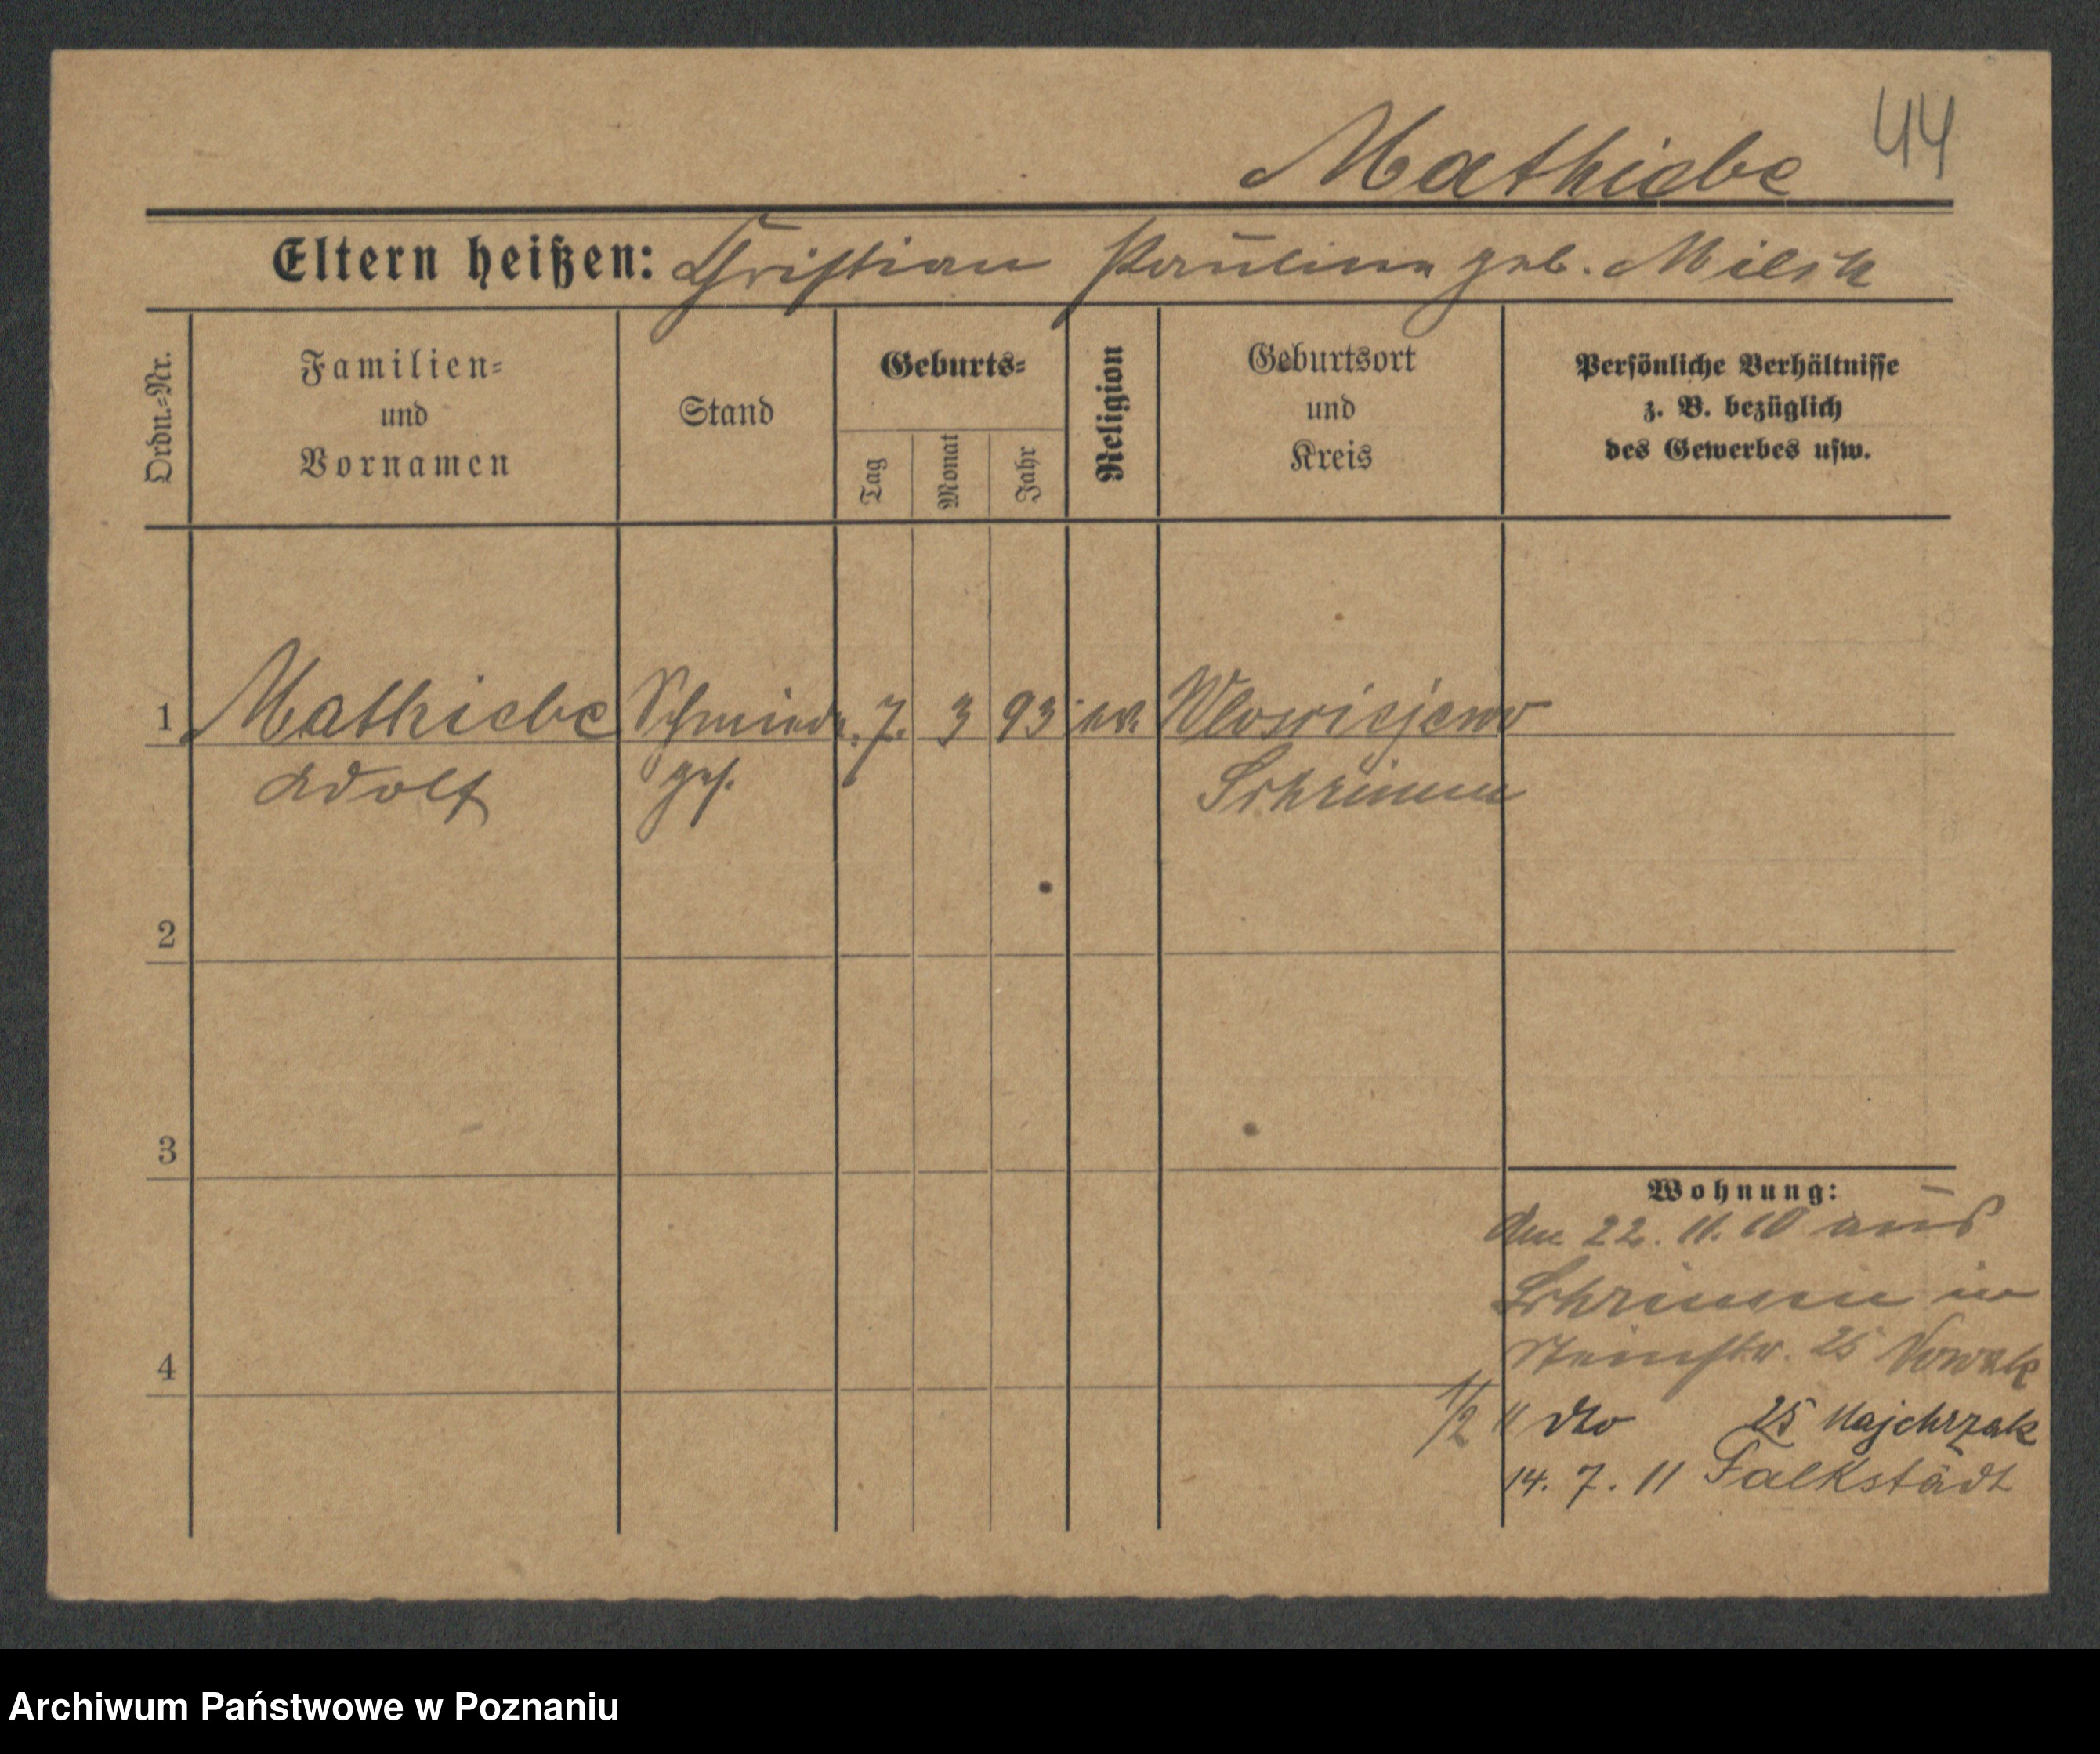 44
Mathiebe
Eltern heißen: Christian Pauline geb. Milsch
Ordn.=Nr.
Familien=
und
Vornamen
Stand
Geburts=
Tag
Monat
Jahr
Religion
Geburtsort
und
Kreis
Persönliche Verhältnisse
z. B. bezüglich
des Gewerbes usw.
1 Mathiebe Schmiede 7. 3 93 Wlosciejewo
Adolf ges. Schrimm
2
3
4
Wohnung:
den 22. 11. 10 aus
Schrimm in
25 Nowak
1/2 11 dto 25 Majchrzak
14. 7. 11 Falkstädt
Archiwum Państwowe w Poznaniu